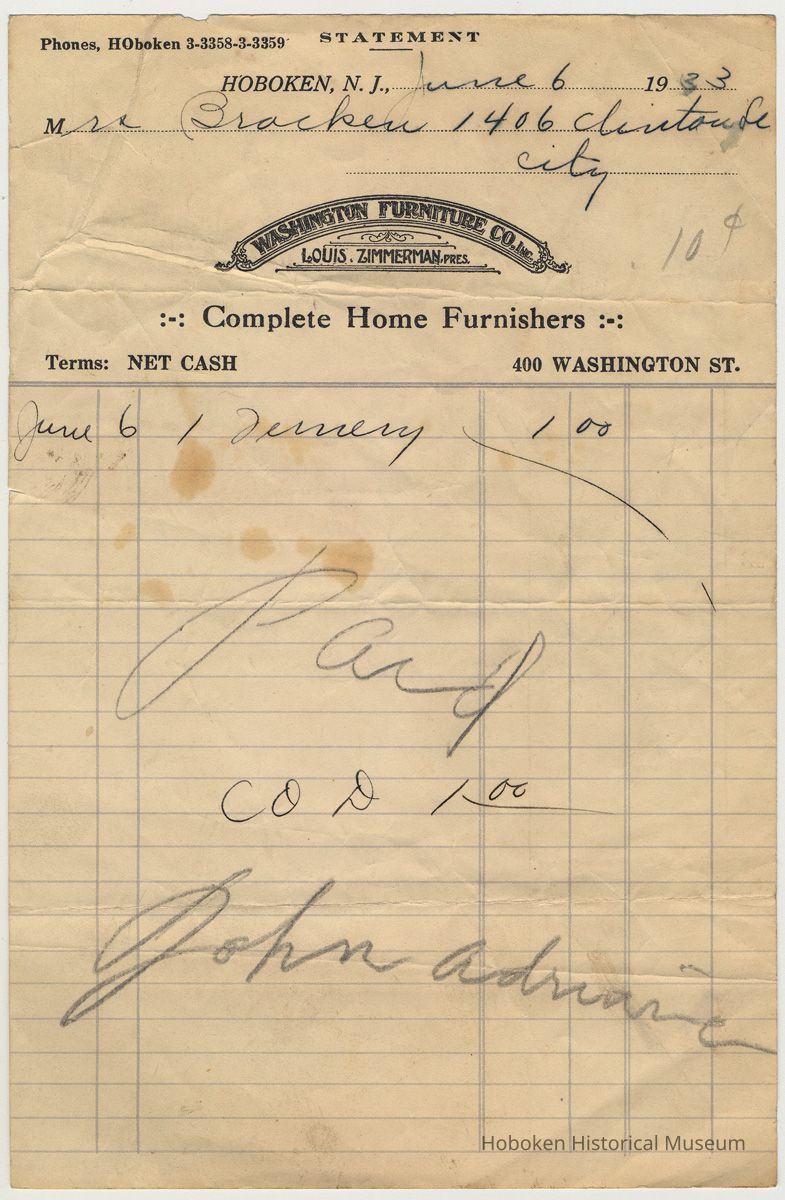 STATEMENT
Phones, HOboken 3-3358-3-3359
HOBOKEN, N. J., June 6 1933
Mrs Bracken 1406 Clinton St
city
WASHINGTON FURNITURE CO. INC.
LOUIS. ZIMMERMAN, PRES.
10¢
:-: Complete Home Furnishers :-:
Terms: NET CASH 400 WASHINGTON ST.
June 6 1 1 00
Paid
COD 1 00
John
Hoboken Historical Museum